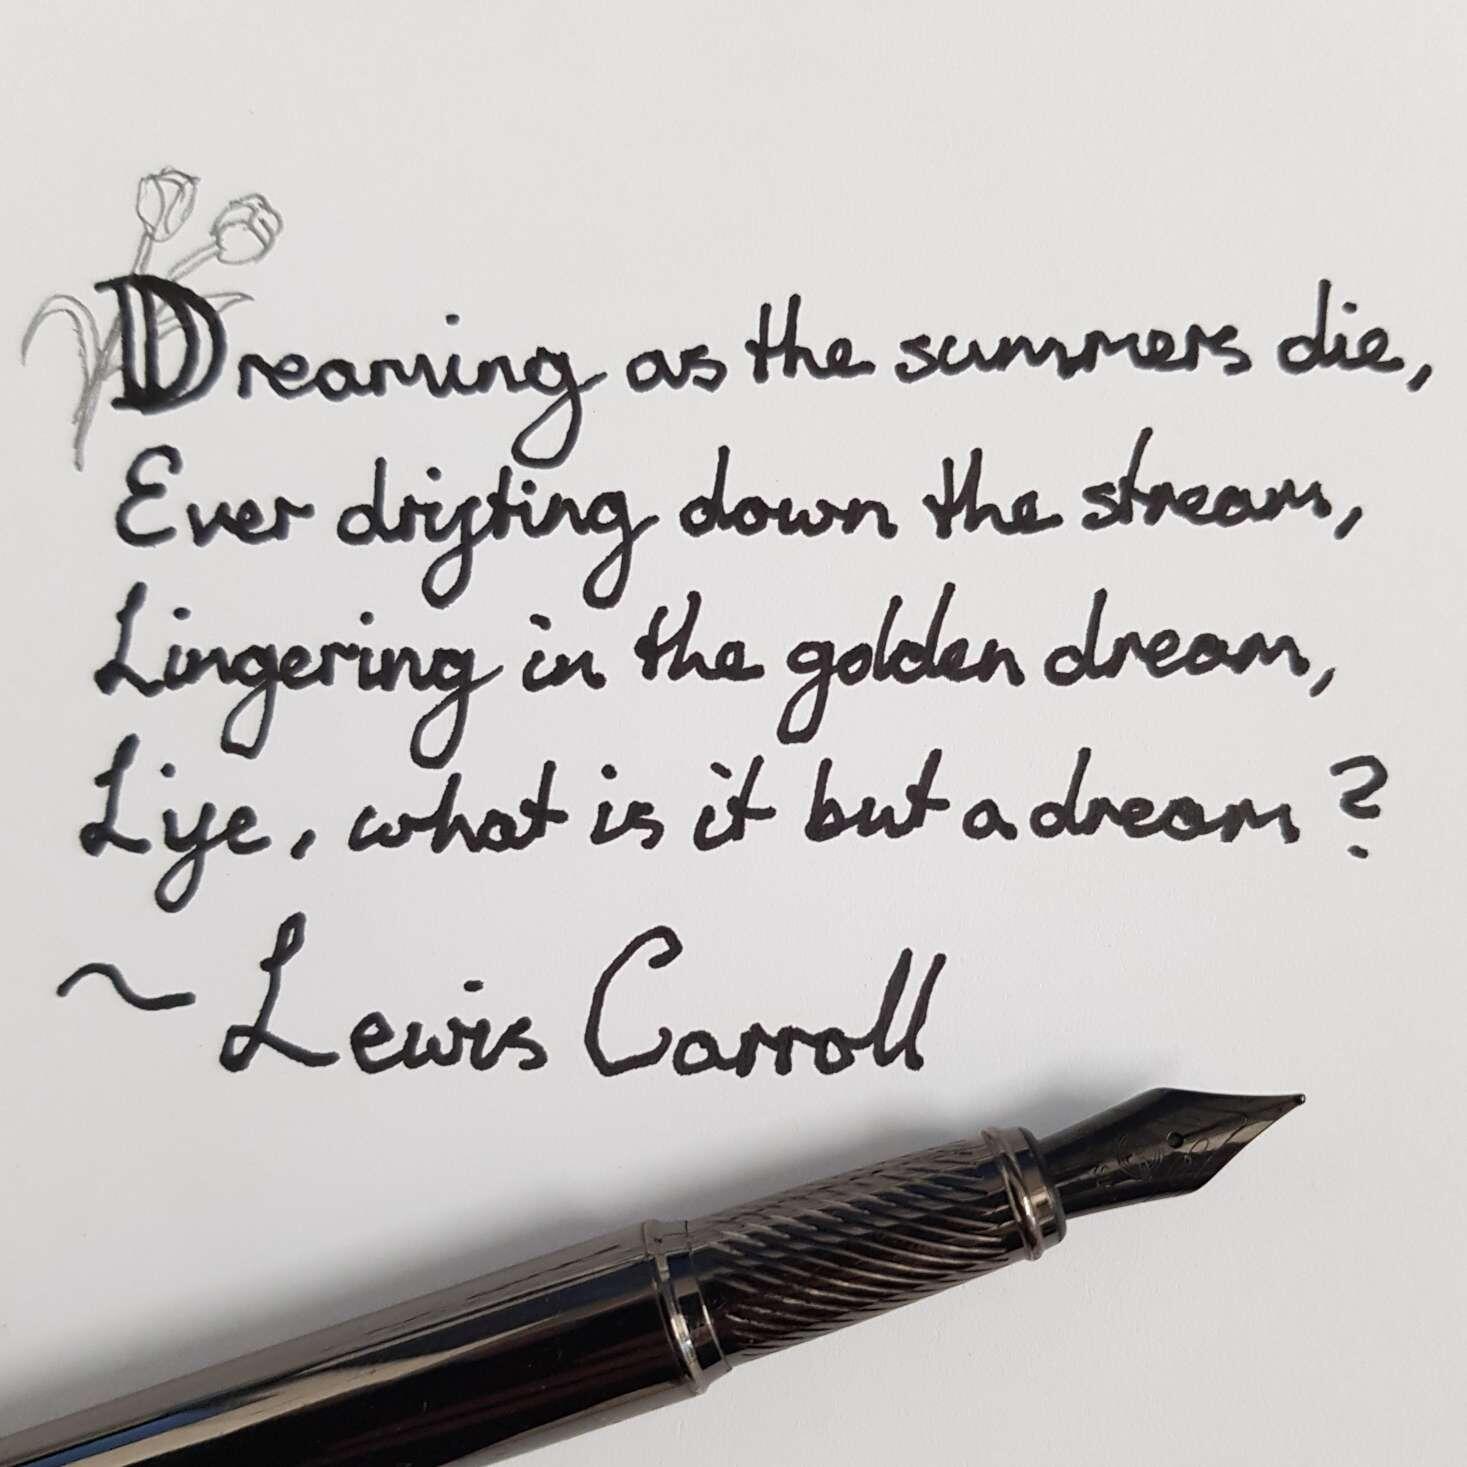 Dreaming as the summers die,
Ever drifting down the stream,
Lingering in the golden dream,
Life, what is it but a dream?
~ Lewis Carroll